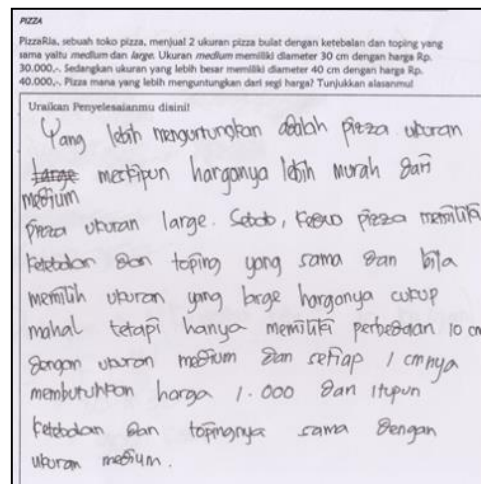 PIZZA
PizzaRia, sebuah toko pizza, menjual 2 ukuran pizza bulat dengan ketebalan dan toping yang
sama yaitu medium dan large. Ukuran medium memiliki diameter 30 cm dengan harga Rp.
30.000,-. Sedangkan ukuran yang lebih besar memiliki diameter 40 cm dengan harga Rp.
40.000,-. Pizza mana yang lebih menguntungkan dari segi harga? Tunjukkan alasanmu!
Uraikan Penyelesaianmu disini!
Yang lebih menguntungkan adalah pizza ukuran
large meskipun harganya lebih murah dari
medium
pizza ukuran large. Sebab, kedua pizza memiliki
ketebalan dan toping yang sama dan bila
memilih ukuran yang large harganya cukup
mahal tetapi hanya memiliki perbedaan 10 cm
dengan ukuran medium dan setiap 1 cmnya
membutuhkan harga 1.000 dan itupun
ketebalan dan topingnya sama dengan
ukuran medium.